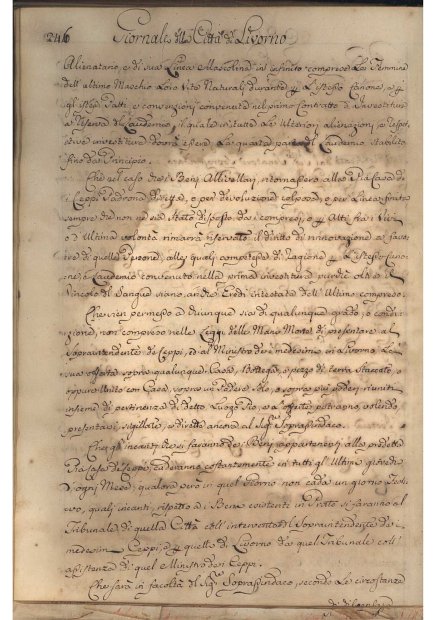 246 Giornale della Città di Livorno
Alienatario, e di sua Linea Mascolina in infinito comprese Le Femmine
dell' ultimo Maschio Loro Vita Naturale durante, e L'istesso Canone, e
gl'istessi Patti e convenzioni convenute nel primo Contratto d'Investitura
a riserva di Laudemio, il quale in tutte Le Ulteriori alienazioni, o respet-
tive investiture dovrà essere La quarta parte del Laudemio stabilito
fino da Principio.
Che nel caso che i Beni Allivellati, ritornassero alla Pia Casa de
Ceppi Padrona diretta, o per devoluzione colposa, o per Linea finita
sempre che non ne sia stato disposto da i compresi, o Atti fra i Vivi
o d'Ultima volontà rimarrà riservato il diritto di rinnovazione a favo-
re di quelle Persone, alle quali competesse di Ragione L'istesso Cano-
ne, e Laudemio convenuto nella prima investitura, purchè oltre il
Vincolo del Sangue siano anche Eredi intestate dell' Ultimo compreso.
Che sia permesso a chiunque sia di qualunque grado, o condi-
zione, non compreso nelle Leggi delle Mani Morte di presentare al
Sopraintendente de Ceppi, ed al Ministro de i medesimi in Livorno La
sua offerta sopra qualunque Casa, Bottega, o pezzo di terra staccato, o
oppure Unito con Casa, sopra un Podere solo, o sopra più poderi riuniti
insieme di pertinenza di detto Luogo Pio, e L'offerte potranno volendo
presentarsi sigillate, e dirette ancora al Sig.re Soprassindaco.
Che gl'incanti, che si faranno de i Beni appartenenti alla predetta
Pia Casa de Ceppi, caderanno costantemente in tutti gl'Ultimi giovedì
d'ogni Mese, qualora però in quel Giorno non cada un giorno Festi-
vo, quali incanti, rispetto di Beni esistenti in Prato si faranno al
Tribunale di quella Città coll' intervento del Sopraintendente de i
medesimi Ceppi, e quelle di Livorno da quel Tribunale coll'
assistenza di quel Ministro de Ceppi.
Che sarà in facoltà del Sig.re Soprassindaco, secondo Le circostanze